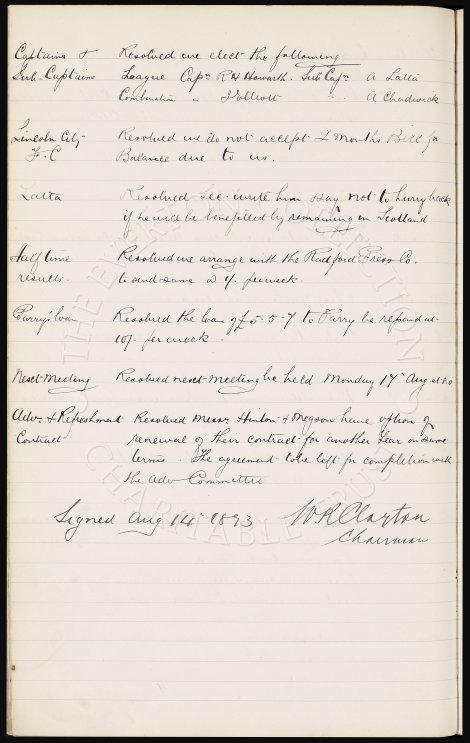 Captains & Resolved we elect the following
Sub-Captains League Capn R H Howarth. Sub Capn A Latta
Combination " J Elliott " " A Chadwick
Lincoln City Resolved we do not accept 2 months Bill for
F.C Balance due to us.
Latta Resolved Sec. write him say not to hurry back
if he will be benefitted by remaining in Scotland
Half time Resolved we arrange with the Radford Press Co.
results. to send same @ per week.
Parry's loan Resolved the loan of £5-5-7 to Parry be repaid at
10/- per week.
Next Meeting Resolved next meeting be held Monday 17th Aug at 8.0
Adv. & Refreshment Resolved Messrs Hinton & Megson have option of
Contract renewal of their contract for another Year on same
terms. The agreement to be left for completion with
the Adv Committee
Signed Aug 14th 1893 W R Clayton
Chairman
THE EVERTON COLLECTION
CHARITABLE TRUST